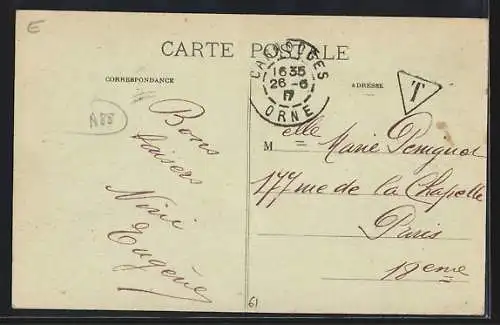 E
CARTE POSTALE
CORRESPONDANCE
ADRESSE
CARROUGES
16 35
26 - 6
17
ORNE
T
A88
Bons
baisers
Nini
Eugène
Melle Marie Penignot
177 rue de la Chapelle
Paris
18eme
61